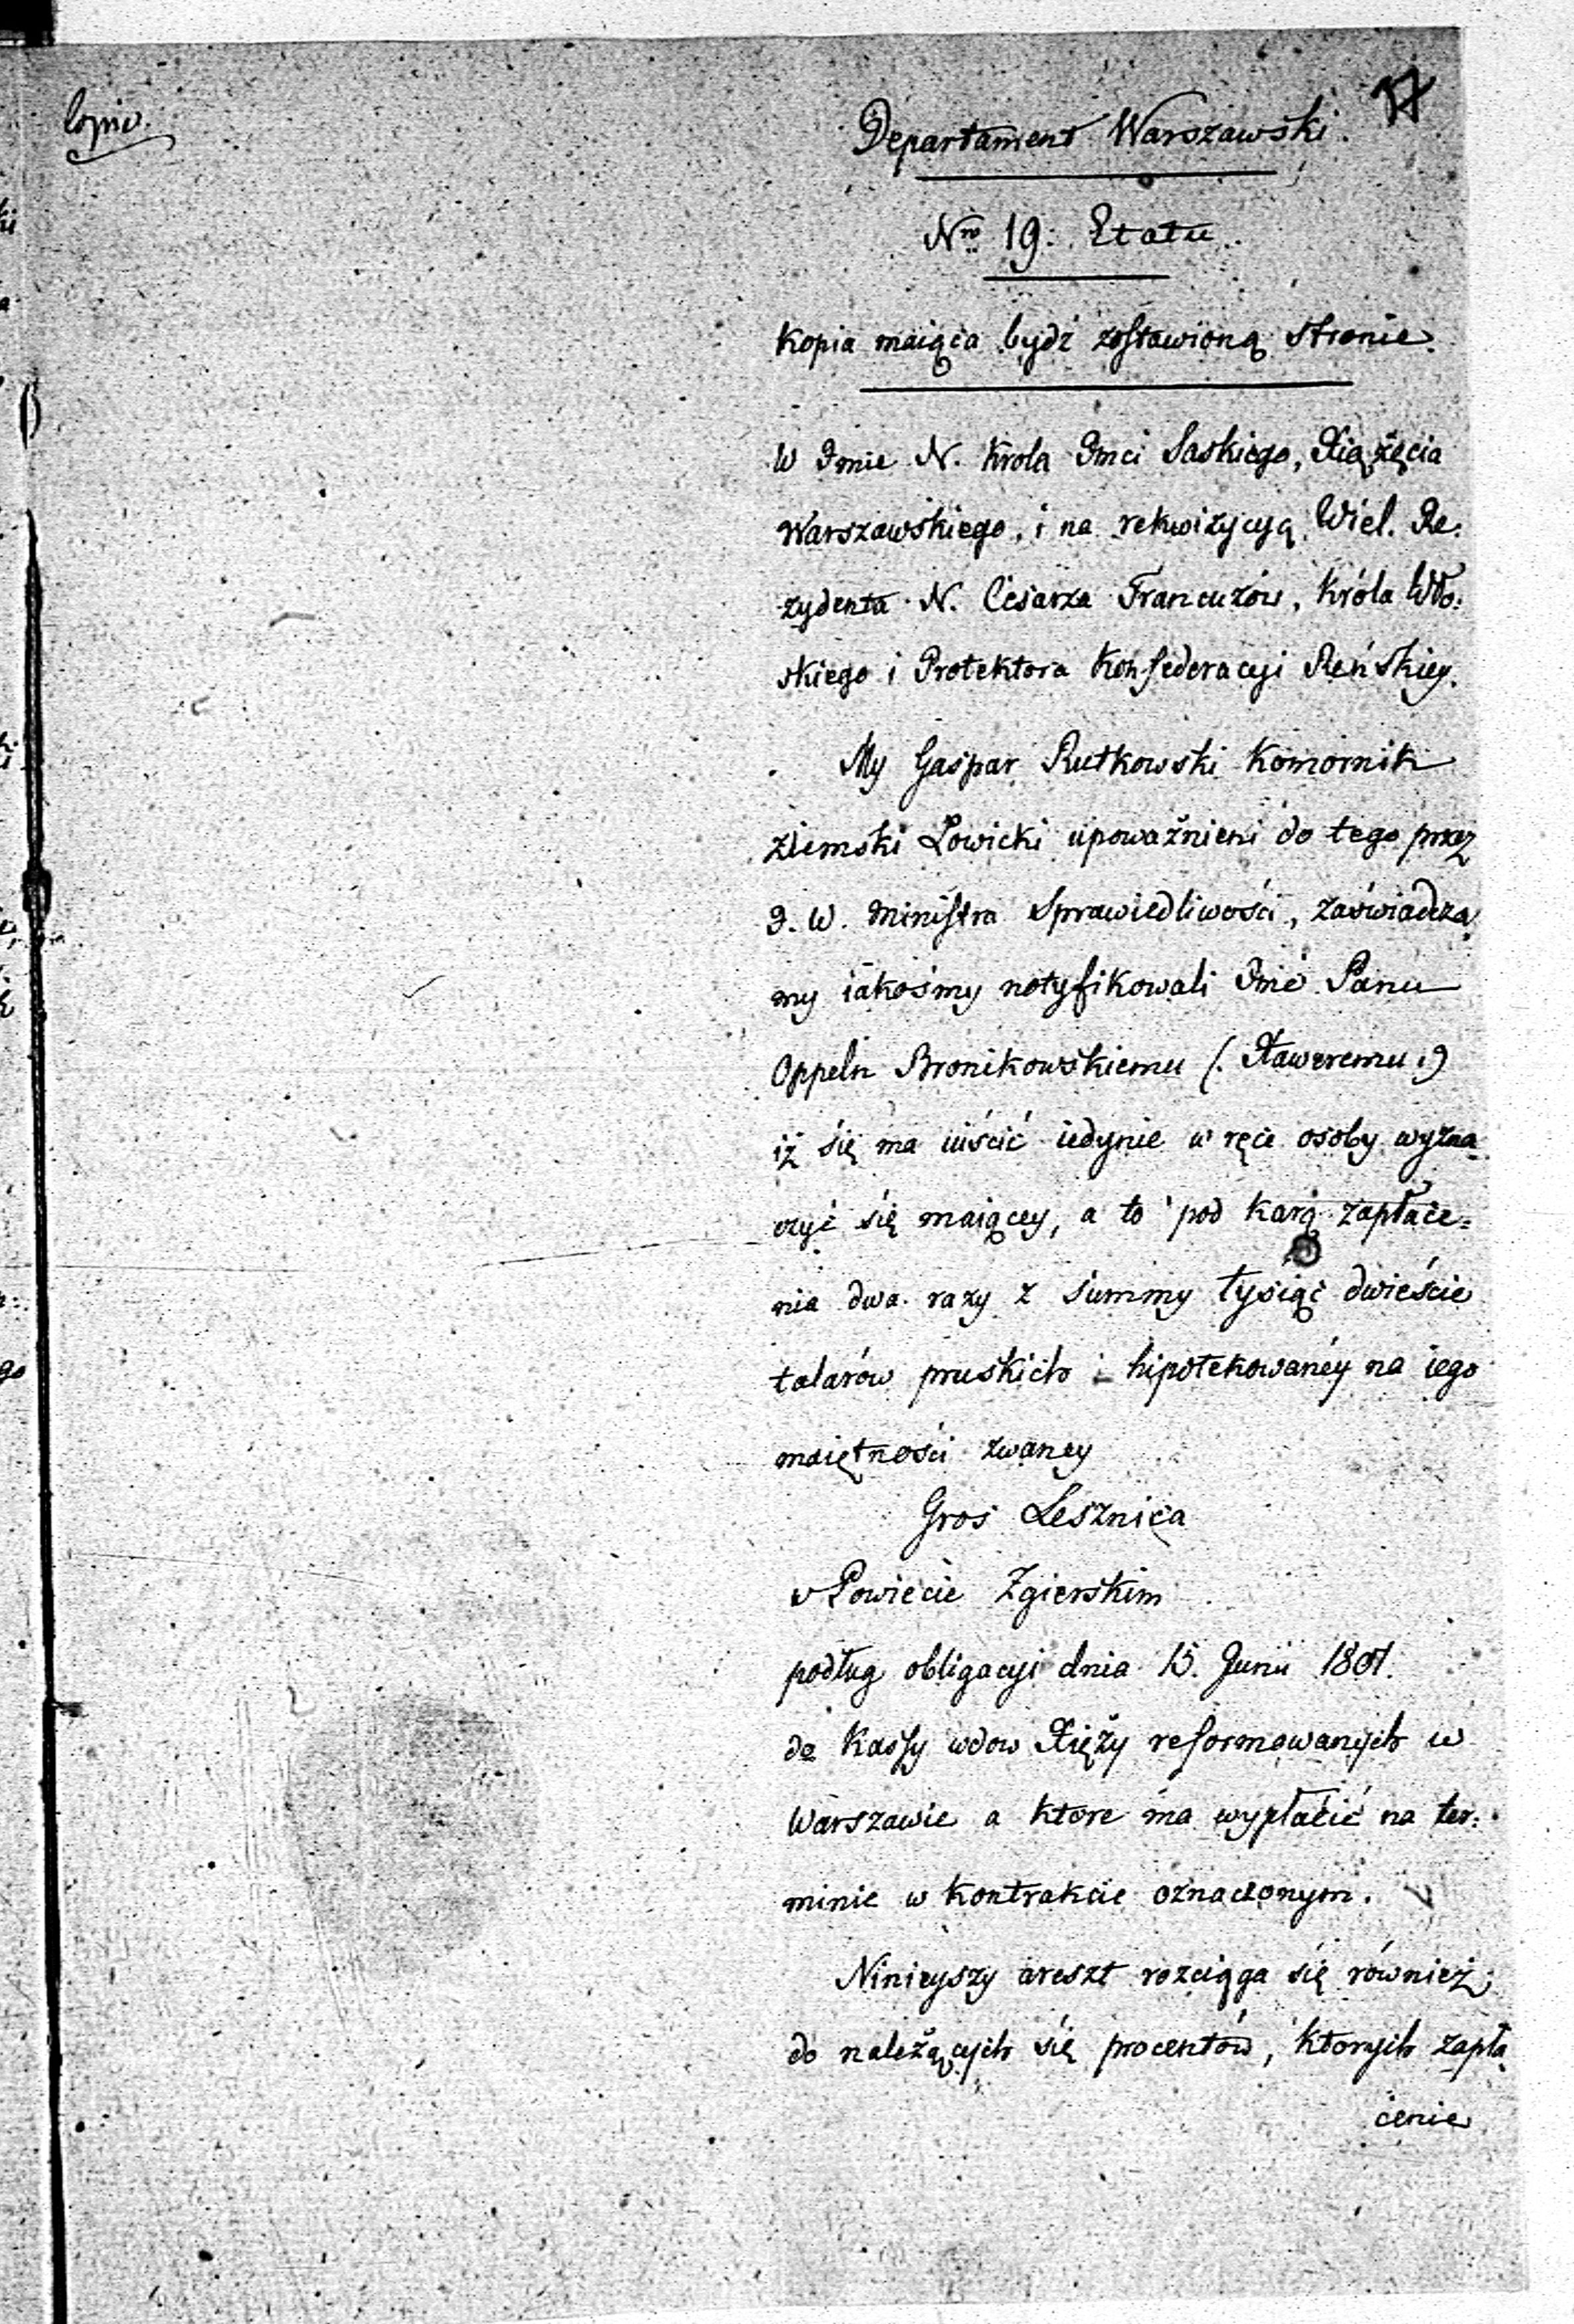 Copia.
17
Departament Warszawski.
Nro 19. Etatu.
Kopia maiąca bydź zostawioną stronie.
W Jmie N. Krola Jmci Saskiego, Xiążęcia
Warszawskiego, i na rekwizycyą Wiel. Re:
zydenta N. Cesarza Francuzów, Króla Wło:
skiego i Protektora Konfederacyi Reńskiey.
My Gaspar Rutkowski Komornik
Ziemski Łowicki upoważnieni do tego przez
J. W. Ministra Sprawiedliwości, zaświadcza,
my iakośmy notyfikowali Jmć Panu
Oppeln Bronikowskiemu (. Xaweremu .)
iż się ma uiścić iedynie w ręce osoby wyzna
czyć się maiącey, a to pod karą zapłace=
nia dwa razy z summy tysiąc dwieście
talarów pruskich i hipotekowanéy na iego
maiętności zwaney
Gros Lesznica
w Powiecie Zgierskim
podług obligacyi dnia 15. Junii 1801.
do Kassy wdow Xięży reformowanych w
Warszawie a ktore ma wypłacić na ter:
minie w kontrakcie oznaczonym.
Ninieyszy areszt rozciąga się również
do należących się procentów, ktorych zapła
cenie